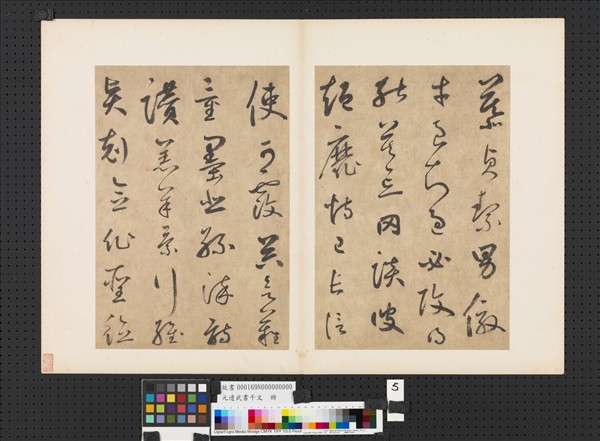 慕貞絜男效
才良知過必改得
能莫忘罔談彼
短靡恃己長信
使可覆器欲難
量墨悲絲染詩
讚羔羊景行維
賢剋念作聖德
故書 000169N000000000
元邊武書千文 冊
5